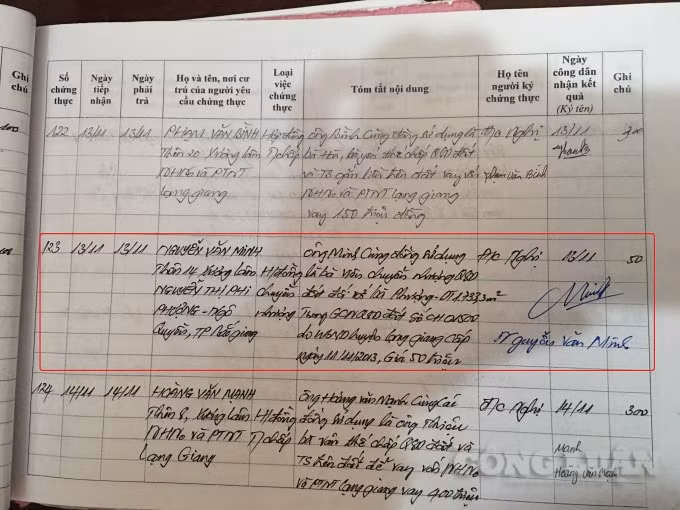 Ghi chú
Số chứng thực
Ngày tiếp nhận
Ngày phải trả
Họ và tên, nơi cư trú của người yêu cầu chứng thực
Loại việc chứng thực
Tóm tắt nội dung
Họ tên người ký chứng thực
Ngày công dân nhận kết quả (Ký tên)
Ghi chú
122 13/11 13/11 PHẠM VĂN BÌNH Hợp đồng ông Bình cùng đồng sử dụng là Đ/c Nghị 13/11
Thôn 20 Xương Lâm T.chấp bà Hà, thế chấp QSD đất
NHNo và PTNT và TS gắn liền trên đất vay vốn Phạm Văn Bình
Lạng giang NHNo và PTNT Lạng giang
vay 150 triệu đồng
123 13/11 13/11 NGUYỄN VĂN MINH ông Minh cùng đồng sử dụng Đ/c Nghị 13/11 50
Thôn 14, Xương Lâm H/đồng là bà Viên chuyển nhượng QSD
NGUYỄN THỊ PHI chuyển đất đối với bà Phượng - DT m² Minh
PHƯỢNG - Ngô nhượng Trong GCNQSD đất Số CH
Quyền, TP Bắc giang do UBND huyện Lạng giang cấp Nguyễn Văn Minh
ngày 11/11/2013, Giá 50 triệu
124 14/11 14/11 HOÀNG VĂN MẠNH ông Hoàng văn Mạnh cùng các Đ/c Nghị 14/11 300
Thôn 8, Xương Lâm H/đồng đồng sử dụng là ông
NHNo và PTNT T/chấp thế chấp QSD đất và Mạnh
Lạng Giang TS trên đất để vay vốn NHNo Hoàng Văn Mạnh
và PTNT Lạng giang vay 400 triệu
CÔNG LUẬN